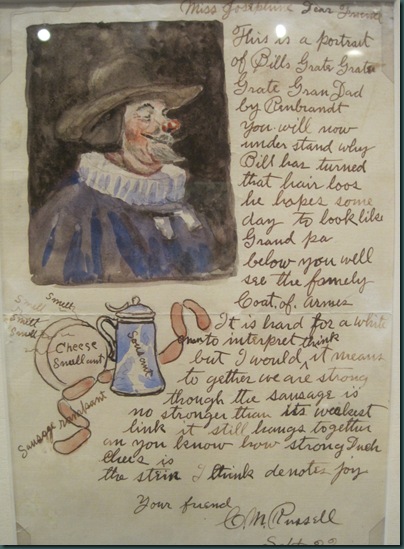 Miss Josephine Dear Friend
This is a portrait
of Bills Grate Grate
Grate Gran Dad
by Rinbrandt
You will now
under stand why
Bill has turned
that hair loos
he hopes some
day to look like
Grand pa
below you well
see the famely
Coat. of. armes
It is hard for a white
man to interpret think
but I would it means
to gether we are strong
though the sausage is
no stronger than its weakest
link it still hangs together
an you know how strong Duch
Chees is
the stein I think denotes joy
Your friend
C M Russell
Sept 22
Smell
Smell
Smell
Smell
Cheese
Smell ant
Sausage